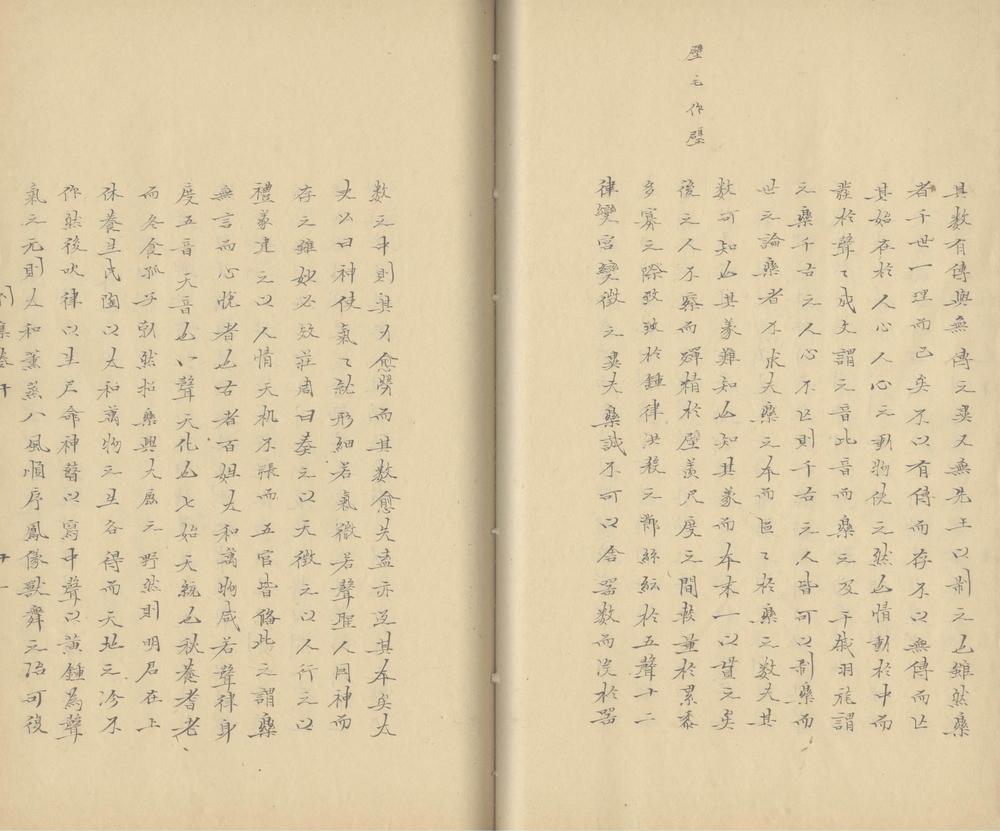 壁毛作璧
其數有傳與無傳之異又無先王以制之也雖然樂
者千世一理而已矣不以有傳而存不以無傳而亡
其始在於人心人心之動物使之然也情動於中而
發於聲〻成文謂之音比音而樂之及干戚羽旄謂
之樂千古之人心不亡則千古之人皆可以制樂而
世之論樂者不求夫樂之本而區〻於樂之數夫其
數可知也其義難知也知其義而本末一以貫之矣
後之人不察而殫精於壁羨尺度之間較量於累黍
多寡之際致疑於鍾律洪殺之鄰紜紜於五聲十二
律變宮變徵之異夫樂誠不可以舍器數而泥於器
數之中則與力愈勞而其數愈失盖亦逆其本矣太
史公曰神使氣〻就形細若氣微若聲聖人因神而
存之雖妙必效莊周曰奏之以天徵之以人行之以
禮義建之以人情天机不張而五官皆偹此之謂樂
無言而心悅者也古者百姓太和萬物咸若聲律身
度五音天音也八聲天化也七始天統也秋養耆老
而冬食孤子勃然招樂興大鹿之野然則明君在上
休養生民陶以太和萬物之生各得而天地之沴不
作然後吹律以生尺命神瞽以寫中聲以黃鍾為聲
氣之元則太和薰蒸八風順序鳳儀獸舞之治可復